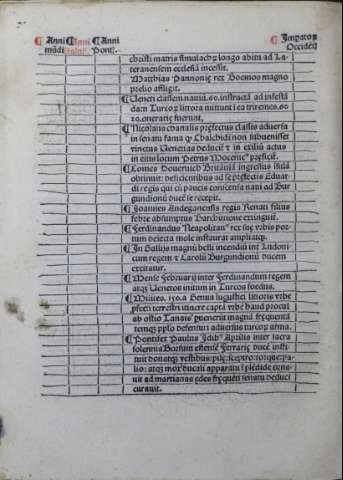 Anni mũdi
Anni salut.
Anni Pont.
Impatoꝝ Occidẽt
christi matris simulachꝝ longo abitu ad La-
teranensem ecclesiã incessit.
Matthias Pannoniȩ rex Boemos magno
prelio affligit.
Veneti classem nauiũ.60.instructã ad
dam Turco ex litora mittunt
60.onerariȩ fuerunt,
Nicolaus chanalis prefectus classis aduersa
in senatu fama ꝙ Chalchidi non subuenisset
vinctus Venetias deducit̃ et in exiliũ actus
in eius locum Petrus Mocenic' preficit̃.
Comes Doueruich Britãniã ingressus isulã
obtinuit: deficientibus ad se prefectis Eduar
di regis qui cũ paucis conscensa naui ad Bur
gundionũ ducẽ se recepit.
Joannes Andegauensis regis Renati filius
febre absumptus Barchinone extinguit̃.
Ferdinandus Neapolitan' rex suȩ vrbis por-
tum deiecta mole instaurat ampliatqȝ.
In Gallijs magni belli incendiũ int̃ Ludoui
cum regem et Carolũ Burgundionũ ducem
excitatur.
Mense Februarij inter Ferdinandum regem
atqȝ Venetos initum in Turcos foedus.
Milites.150.a Genua lugustici litoris vrbe
pfecti terrestri itinere capta vrbe haud procul
ab ostio Tanais
temqȝ pplo defensuri aduersus turcoꝝ arma.
Pontifex Paulus Idib' Aprilis inter sacra
solennia Borsium estẽsẽ Ferrariȩ ducẽ insti
tuit donatqȝ vestibus
lio: atqȝ mox ducali apparatu splẽdide
uit ad martianas ȩdes frequẽti senatu deduci
curauit.